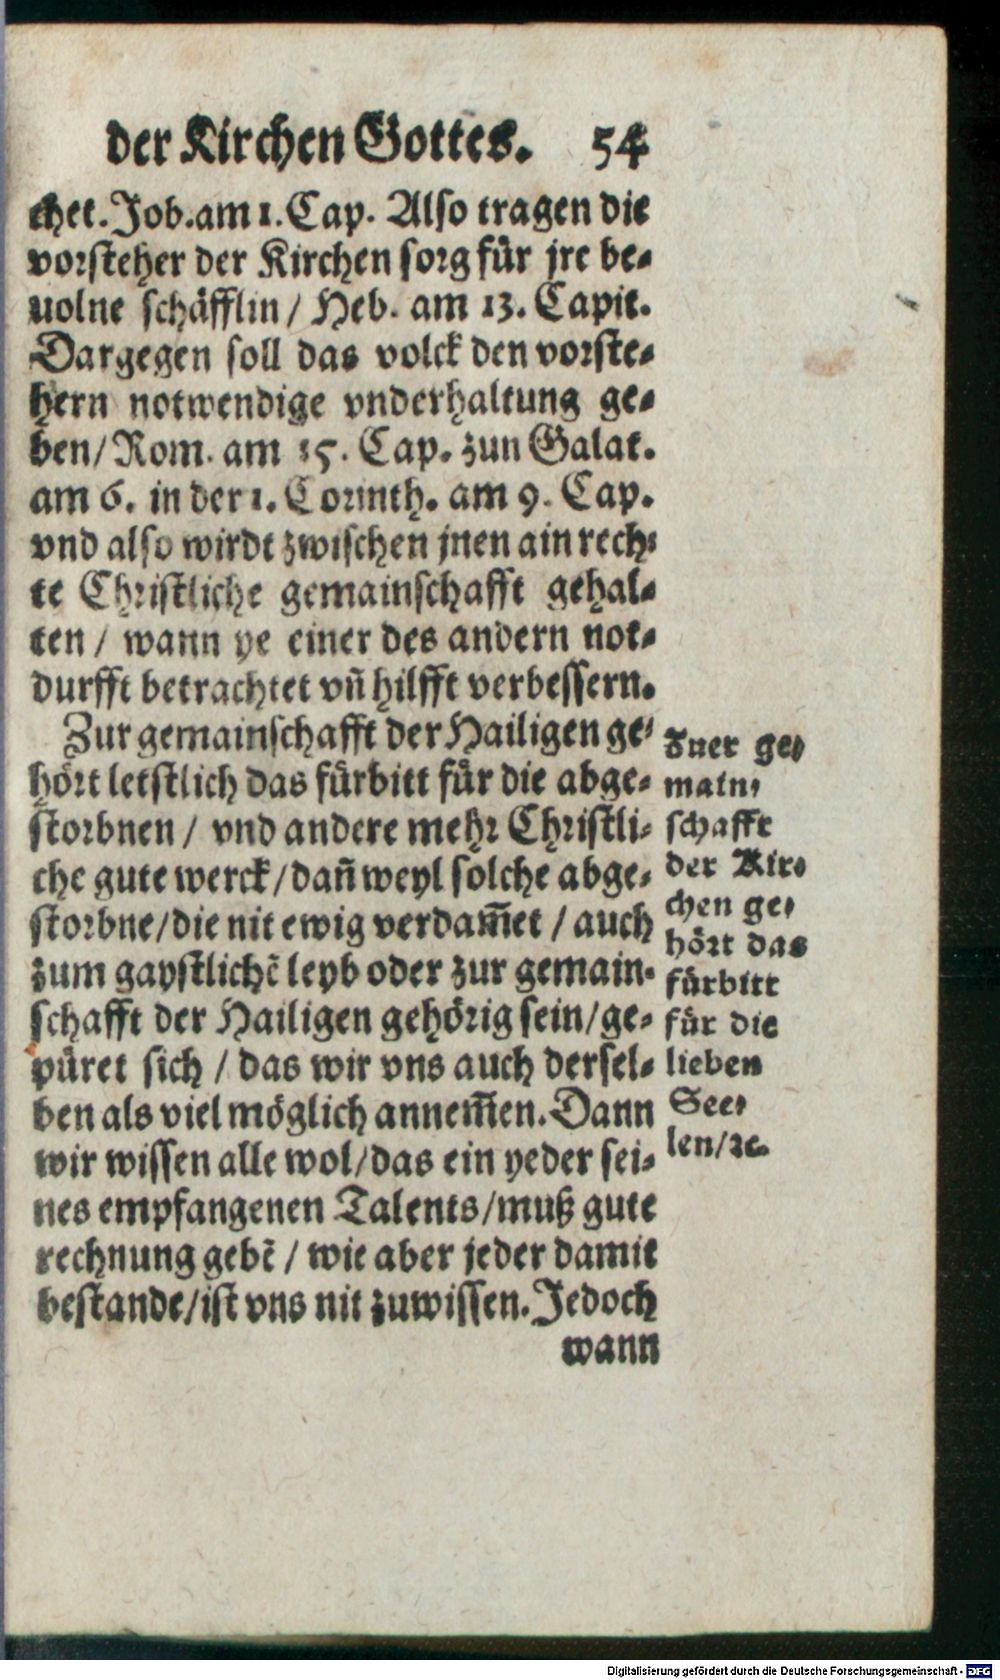 der Kirchen Gottes. 54
chet. Job. am 1. Cap. Also tragen die
vorsteher der Kirchen sorg für jre be-
uolne schäfflin / Heb. am 13. Capit.
Dargegen soll das volck den vorste-
hern notwendige vnderhaltung ge-
ben / Rom. am 15. Cap. zun Galat.
am 6. in der 1. Corinth. am 9. Cap.
vnd also wirdt zwischen jnen ain rech-
te Christliche gemainschafft gehal-
ten / wann ye einer des andern not-
durfft betrachtet vñ hilfft verbessern.
Zur gemainschafft der Hailigen ge-
hört letstlich das fürbitt für die abge-
storbnen / vnd andere mehr Christli-
che gute werck / dañ weyl solche abge-
storbne / die nit ewig verdam̃et / auch
zum gaystlichẽ leyb oder zur gemain-
schafft der Hailigen gehörig sein / ge-
püret sich / das wir vns auch dersel-
ben als viel möglich annem̃en. Dann
wir wissen alle wol / das ein yeder sei-
nes empfangenen Talents / muß gute
rechnung gebẽ / wie aber jeder damit
bestande / ist vns nit zuwissen. Jedoch
wann
Zuer ge-
main-
schafft
der Kir-
chen ge-
hört das
fürbitt
für die
lieben
See-
len / ꝛc.
Digitalisierung gefördert durch die Deutsche Forschungsgemeinschaft - DFG